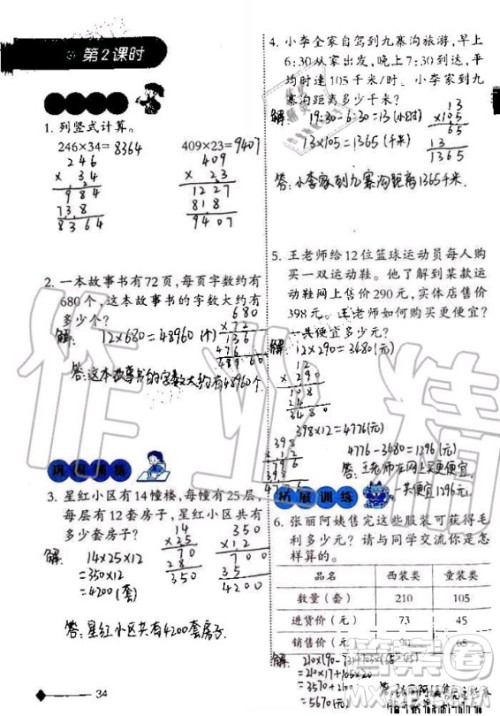 第2课时
1. 列竖式计算。
246×34=8364
409×23=9407
246
× 34
984
738
8364
409
× 23
1227
818
9407
2. 一本故事书有72页，每页字数约有
680个，这本故事书的字数大约有
多少个？
解：12×680=48960（个）
680
×72
136
476
48960
答：这本故事书的字数大约有48960个.
巩固训练
3. 星红小区有14幢楼，每幢有25层，
每层有12套房子，星红小区共有
多少套房子？
解：14×25×12
=350×12
=4200（套）
14
×25
70
28
350
350
×12
700
35
4200
答：星红小区共有4200套房子.
34
4. 小李全家自驾到九寨沟旅游，早上
6:30从家出发，晚上7:30到达，平
均时速105千米/时。小李家到九
寨沟距离多少千米？
解：19:30-6:30=13（小时）
13×105=1365（千米）
13
×105
65
13
1365
答：小李家到九寨沟距离1365千米.
5. 王老师给12位篮球运动员每人购
买一双运动鞋。他了解到某款运
动鞋网上售价290元，实体店售价
398元。王老师如何购买更便宜？
一共便宜多少元？
解：12×290=3680（元）
12
×290
108
24
398×12=4776（元）
398
×12
4776-3480=1296（元）
答：王老师在网上购买更便宜，
共便宜1296元.
拓展训练
6. 张丽阿姨售完这些服装可获得毛
利多少元？请与同学交流你是怎
样算的。
品名 西装类 童装类
数量（套） 210 105
进货价（元） 73 45
销售价（元） 90 68
=210×17+105×
=3570+